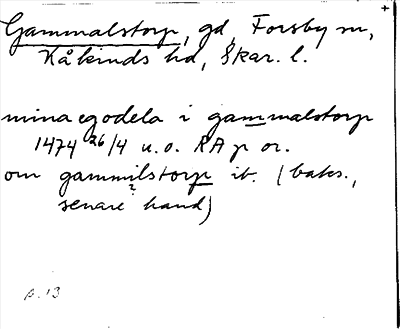 Gammalstorp, gd, Forsby sn,
Kåkinds hd, Skar. l.
mina egodela i gammalstorp
1474 26/4 u. o. RA p or.
om gammilstorp ib. (baks.,
?
senare hand)
p. 13